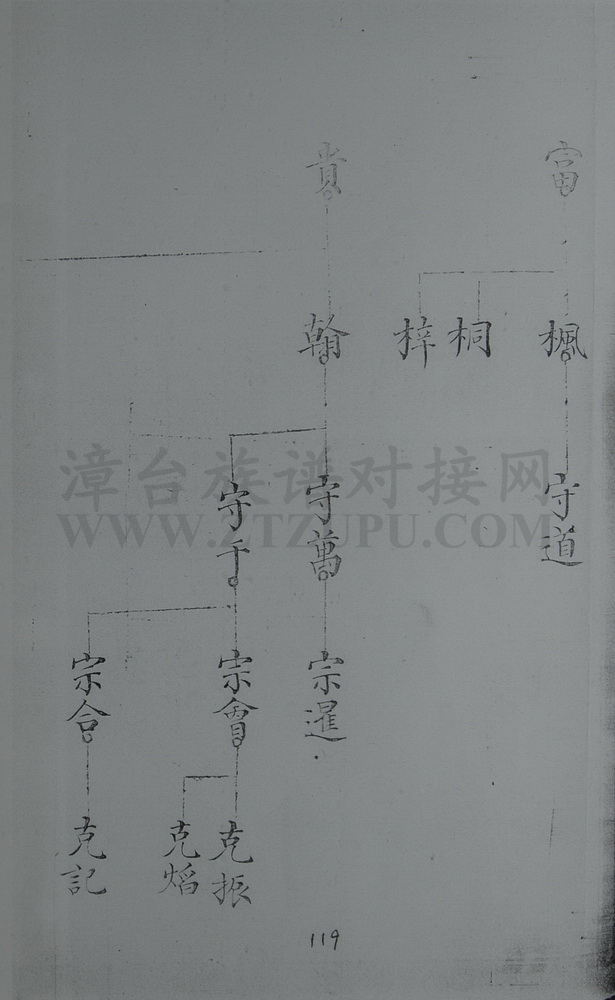 富
貴
楓
桐
梓
翰
守道
守萬
守千
宗暹
宗會
宗合
克振
克焰
克記
119
漳台族谱对接网
WWW.ZTZUPU.COM